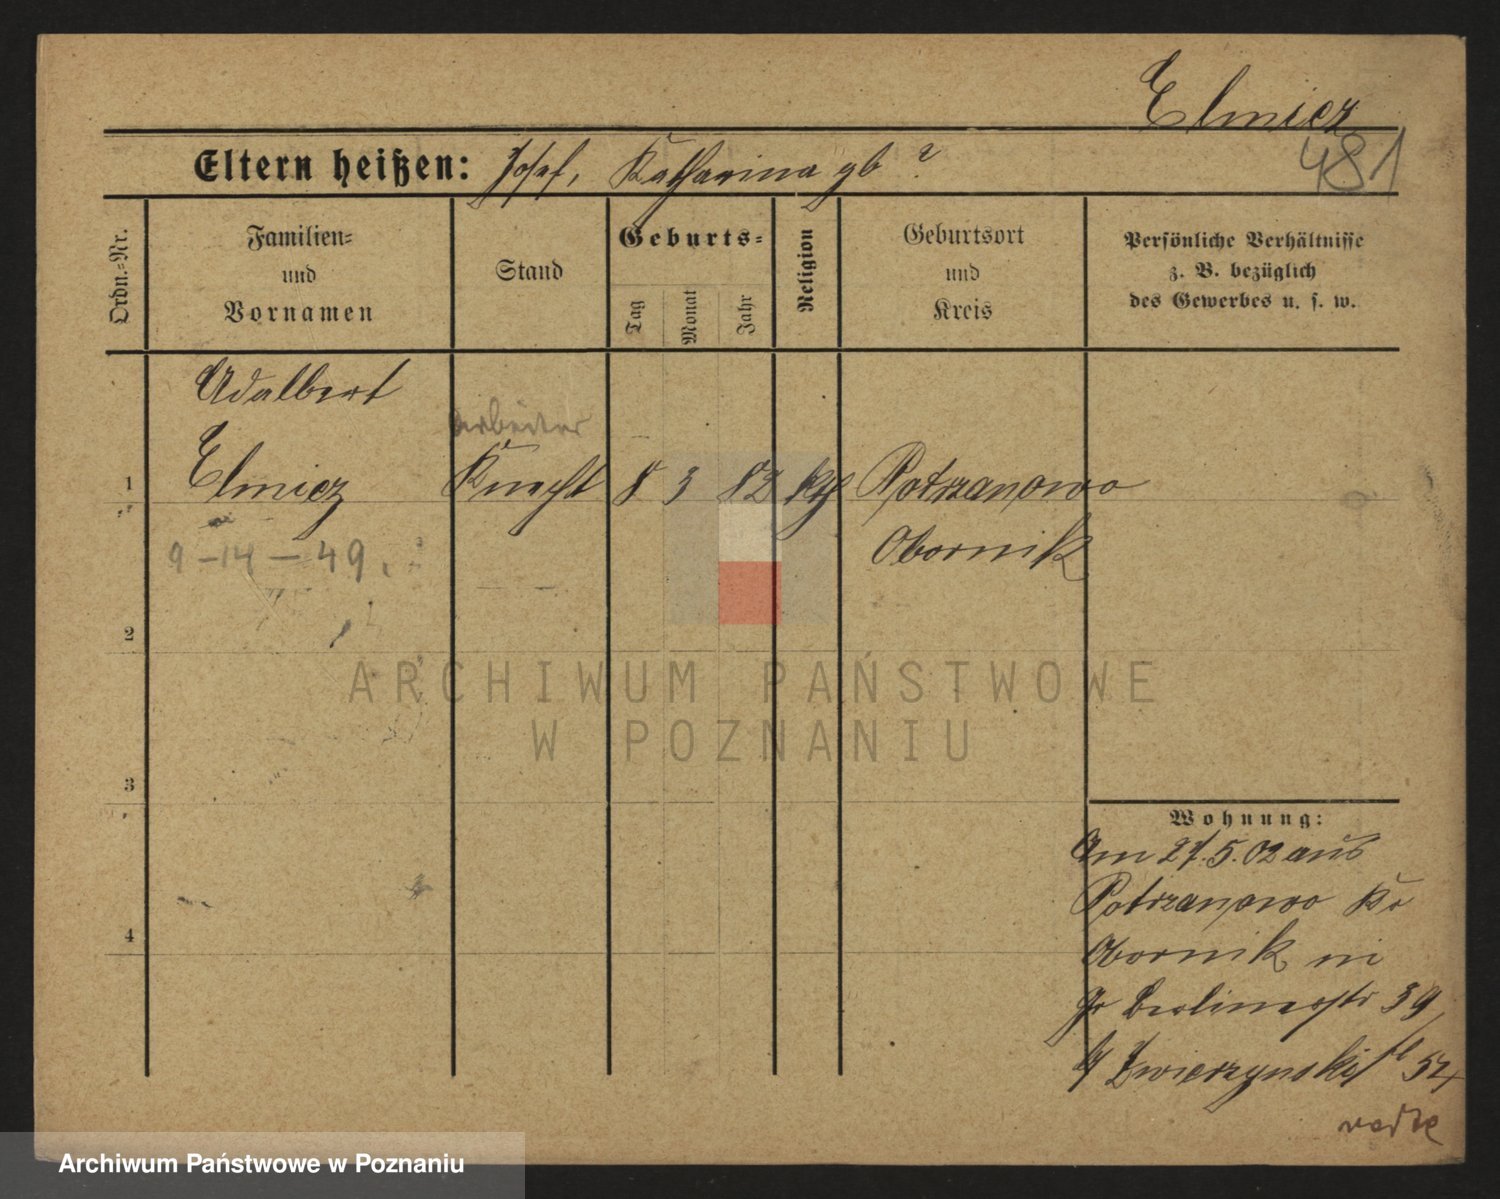 Elmicz
481
Eltern heißen: Josef, Katharina gb ?
Ordn.=Nr.
Familien=
und
Vornamen
Stand
Geburts=
Tag
Monat
Jahr
Religion
Geburtsort
und
Kreis
Persönliche Verhältnisse
z. B. bezüglich
des Gewerbes u. s. w.
Adalbert
Arbeiter
1 Elmicz Knecht 8 3 82 kth Potrzanowo
Obornik
9-14-49.
2
ARCHIWUM PAŃSTWOWE
W POZNANIU
3
Wohnung:
Am 27.5.02 aus
Potrzanowo Kr
4
Obornik in
Gr Berlinerstr 39
Zwierzynski
Archiwum Państwowe w Poznaniu